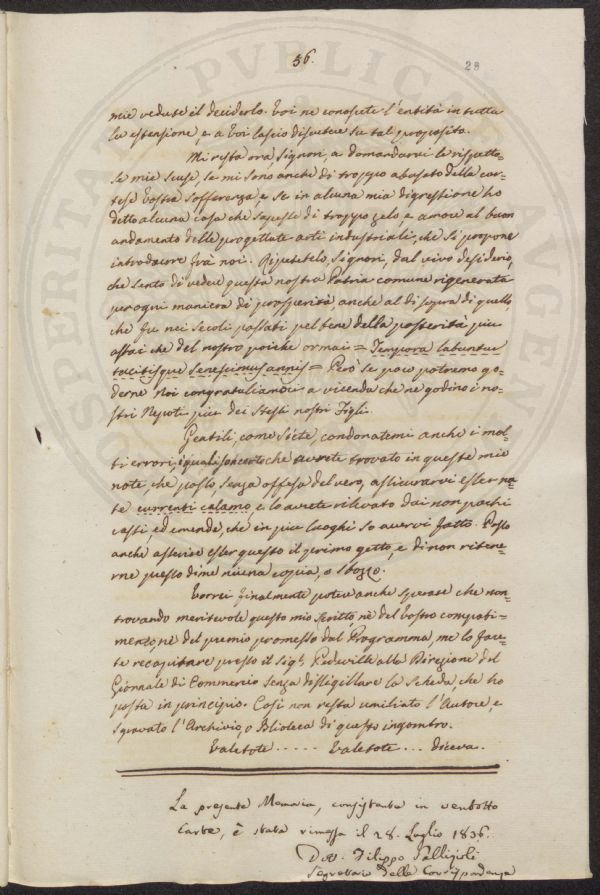 56.
23
mie vedute il deciderlo. Voi ne conoscete l'entità in tutta
la estensione, e a Voi lascio discutere su tal proposito.
Mi resta ora, Signori, a domandarvi le rispetto-
se mie scuse, se mi sono anche di troppo abusato della cor-
tese Vostra Sofferenza, e se in alcuna mia digressione ho
detto alcuna cosa che sapesse di troppo zelo, e amore al buon
andamento delle progettate arti industriali, che si propone
introdurre frà noi. Ripetetelo, Signori, dal vivo desiderio,
che sento di vedere questa nostra Patria comune rigenerata
per ogni maniera di prosperità, anche al di sopra di quello,
che fu nei Secoli passati pel bene della posterità più
assai che del nostro poichè ormai = Tempora labuntur
tacitisque Senescimus annis = Però se poco potremo go-
derne Noi congratuliamoci a vicenda che ne godino i no-
stri Nepoti più dei Stessi nostri Figli.
Gentili, come Siete, condonatemi anche i mol-
ti errori, i quali son certo che avrete trovato in queste mie
note, che posso senza offesa del vero, assicurarvi esser na-
te currenti calamo, e lo avrete rilevato dai non pochi
cassi, ed emende, che in più luoghi so avervi fatto. Posso
anche asserire esser questo il primo getto, e di non ritene-
rne presso di me niuna copia, o sbozzo.
Vorrei finalmente potere anche sperare che non
trovando meritevole questo mio Scritto, nè del Vostro compati-
mento nè del premio promesso dal Programma, me lo fac-
te recapitare presso il Sig.r Pedeville alla Direzione del
Giornale di Commercio senza disigillare la Scheda, che ho
posta in principio. Così non resta umiliato l'Autore, e
sgravato l'Archivio, o Blioteca di questo ingombro.
Valetote ..... Valetote ... diceva.
La presente Memoria, consistente in ventotto
Carte, è stata rimessa il 28. Luglio 1836.
Dott. Filippo Pallizioli
Segretario delle Corrispondenze